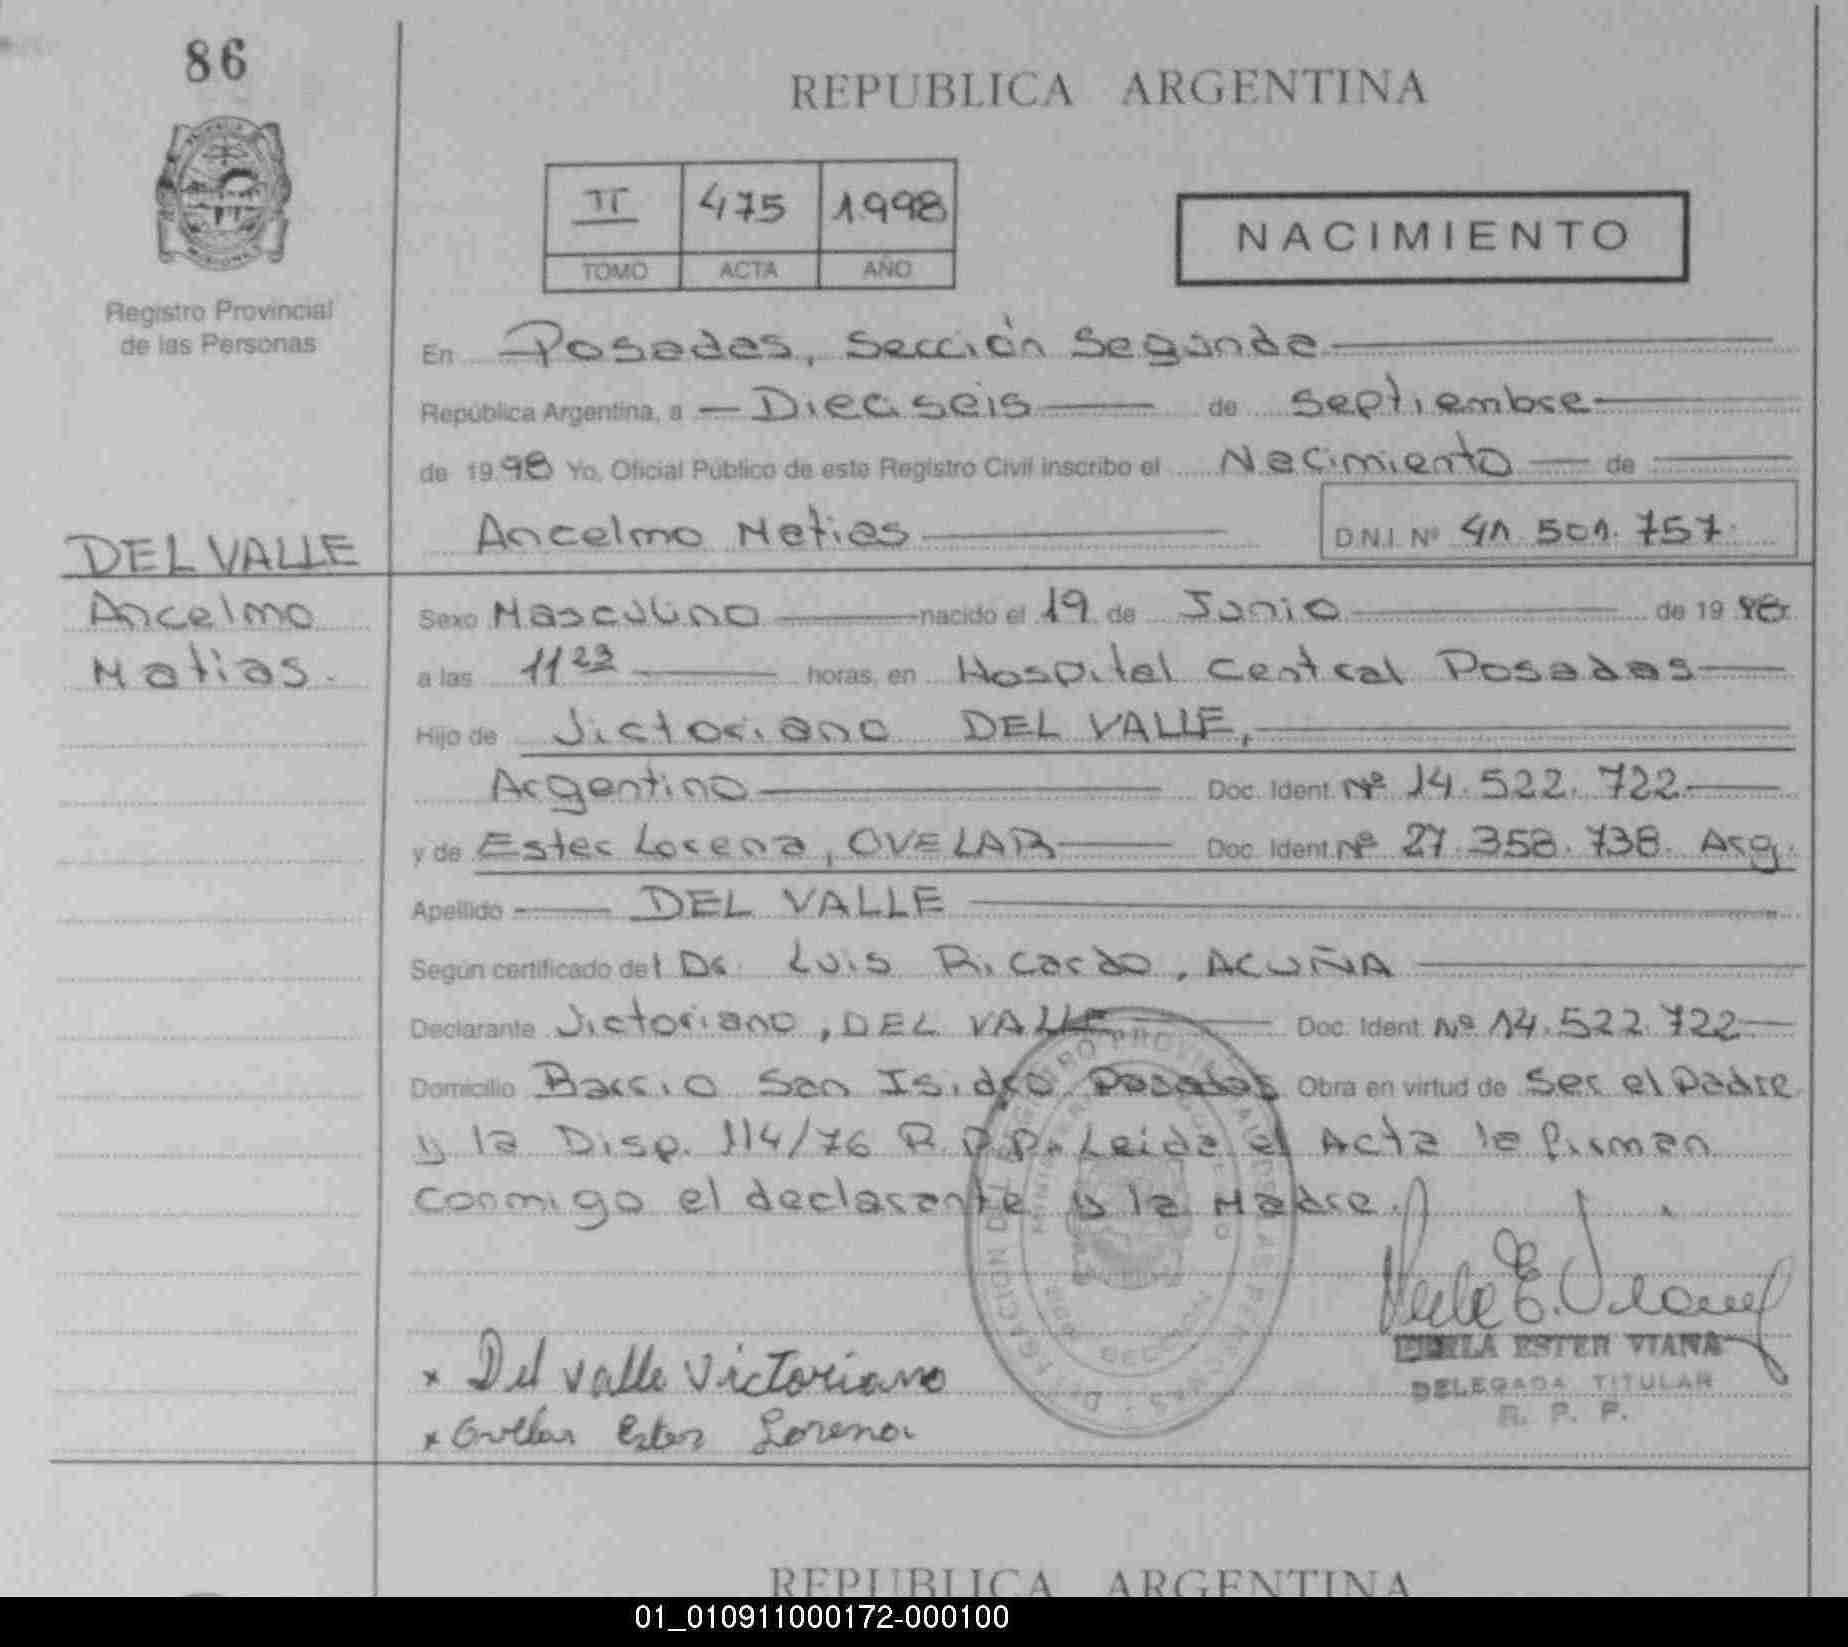 86
REPUBLICA ARGENTINA
II 475 1998
TOMO ACTA AÑO
NACIMIENTO
Registro Provincial
de las Personas
En Posadas, Sección Segunda
República Argentina, a Dieciseis de Septiembre
de 1998 Yo, Oficial Público de este Registro Civil inscribo el Nacimiento de
Ancelmo Matias D.N.I. Nº 41.501.757.
DEL VALLE
Ancelmo
Matias.
Sexo Masculino nacido el 19 de Junio de 1998
a las 11 23 horas, en Hospital Central Posadas
Hijo de Victoriano DEL VALLE,
Argentino Doc. Ident. Nº 14.522.722
y de Ester Lorena, OVELAR Doc. Ident. Nº 27.358.738. Arg.
Apellido DEL VALLE
Según certificado del Dr. Luis Ricardo, ACUÑA
Declarante Victoriano, DEL VALLE Doc. Ident. Nº 14.522.722
Domicilio Barrio San Isidro Posadas Obra en virtud de Ser el Padre
y la Disp. 114/76 R.P.P. Leida el Acta la firman
conmigo el declarante y la Madre.
x Del valle Victoriano
x Ovelar Ester Lorena
PERLA ESTER VIANA
DELEGADA TITULAR
R. P. P.
REPUBLICA ARGENTINA
01_010911000172-000100